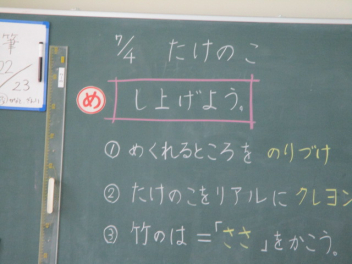 7/4 たけのこ
め し上げよう。
① めくれるところを のりづけ
② たけのこをリアルに クレヨン
③ 竹のは＝「ささ」をかこう。
筆
22
23